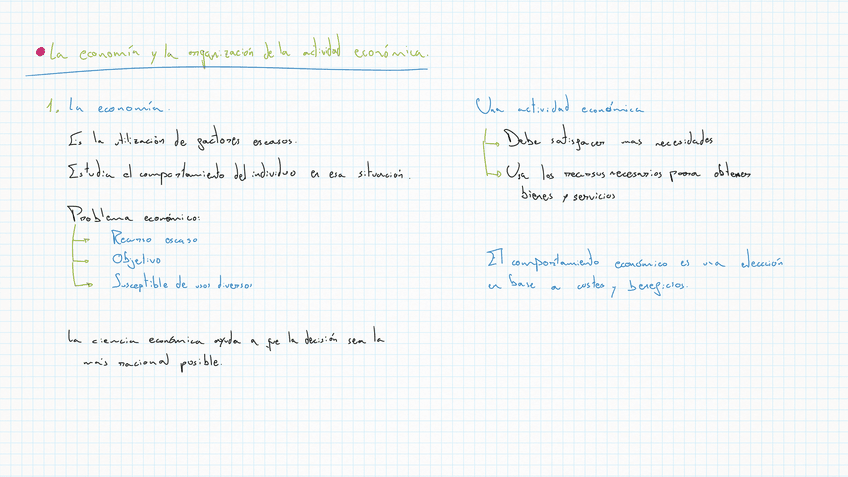 La economía y la organización de la actividad económica.
1. La economía.
Es la utilización de factores escasos.
Estudia el comportamiento del individuo en esa situación.
Problema económico:
Recurso escaso
Objetivo
Susceptible de usos diversos
La ciencia económica ayuda a que la decisión sea la
más racional posible.
Una actividad económica
Debe satisfacer mas necesidades
Usa los recursos necesarios para obtener
bienes y servicios
El comportamiento económico es una elección
en base a costes y beneficios.